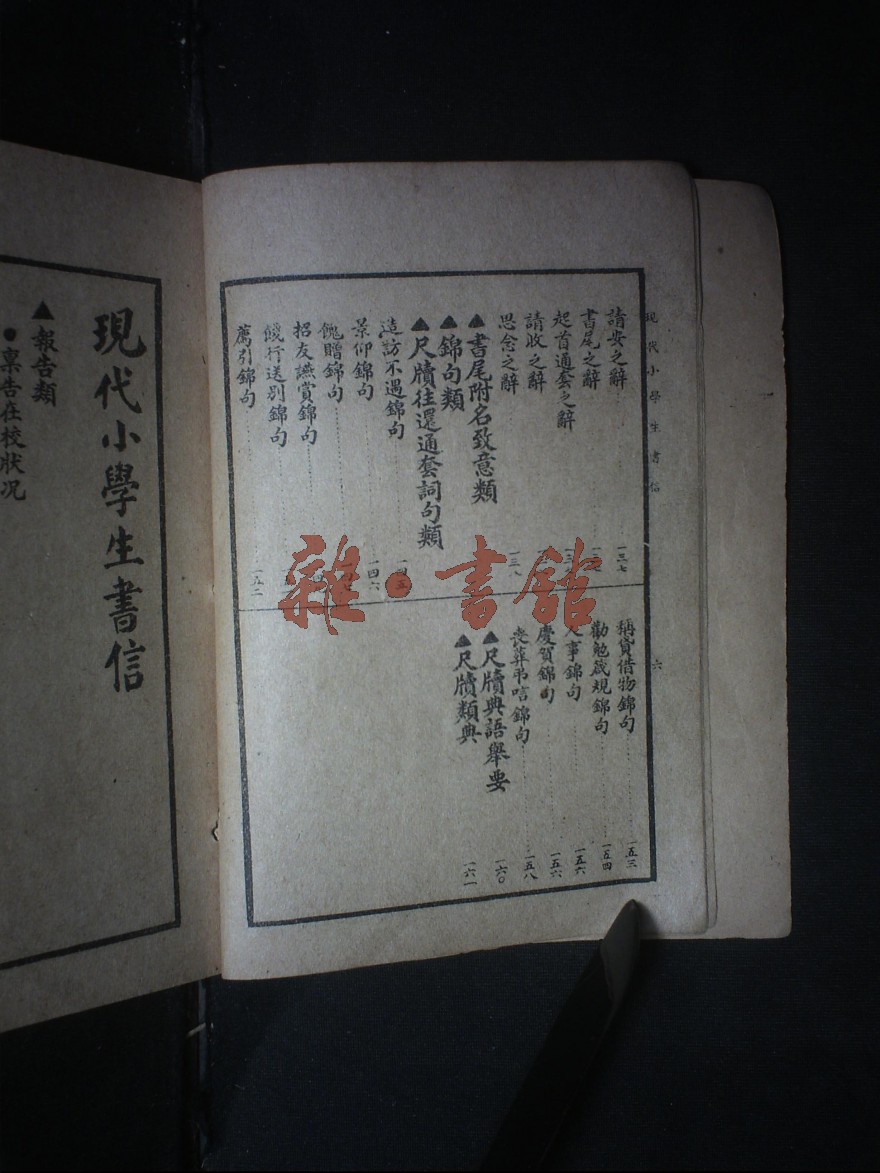 現代小學生書信
六
請安之辭 一三七
書尾之辭
起首通套之辭
請收之辭
思念之辭 一三八
▲書尾附名致意類
▲錦句類
▲尺牘往還通套詞句類
造訪不遇錦句 一四五
景仰錦句 一四六
餽贈錦句
招友讌賞錦句
餞行送別錦句
薦引錦句 一五二
稱貸借物錦句 一五三
勸勉箴規錦句 一五四
事錦句 一五六
慶賀錦句 一五六
喪葬弔唁錦句 一五八
▲尺牘典語舉要 一六〇
▲尺牘類典 一六一
現代小學生書信
▲報告類
●稟告在校狀況
雜·書館